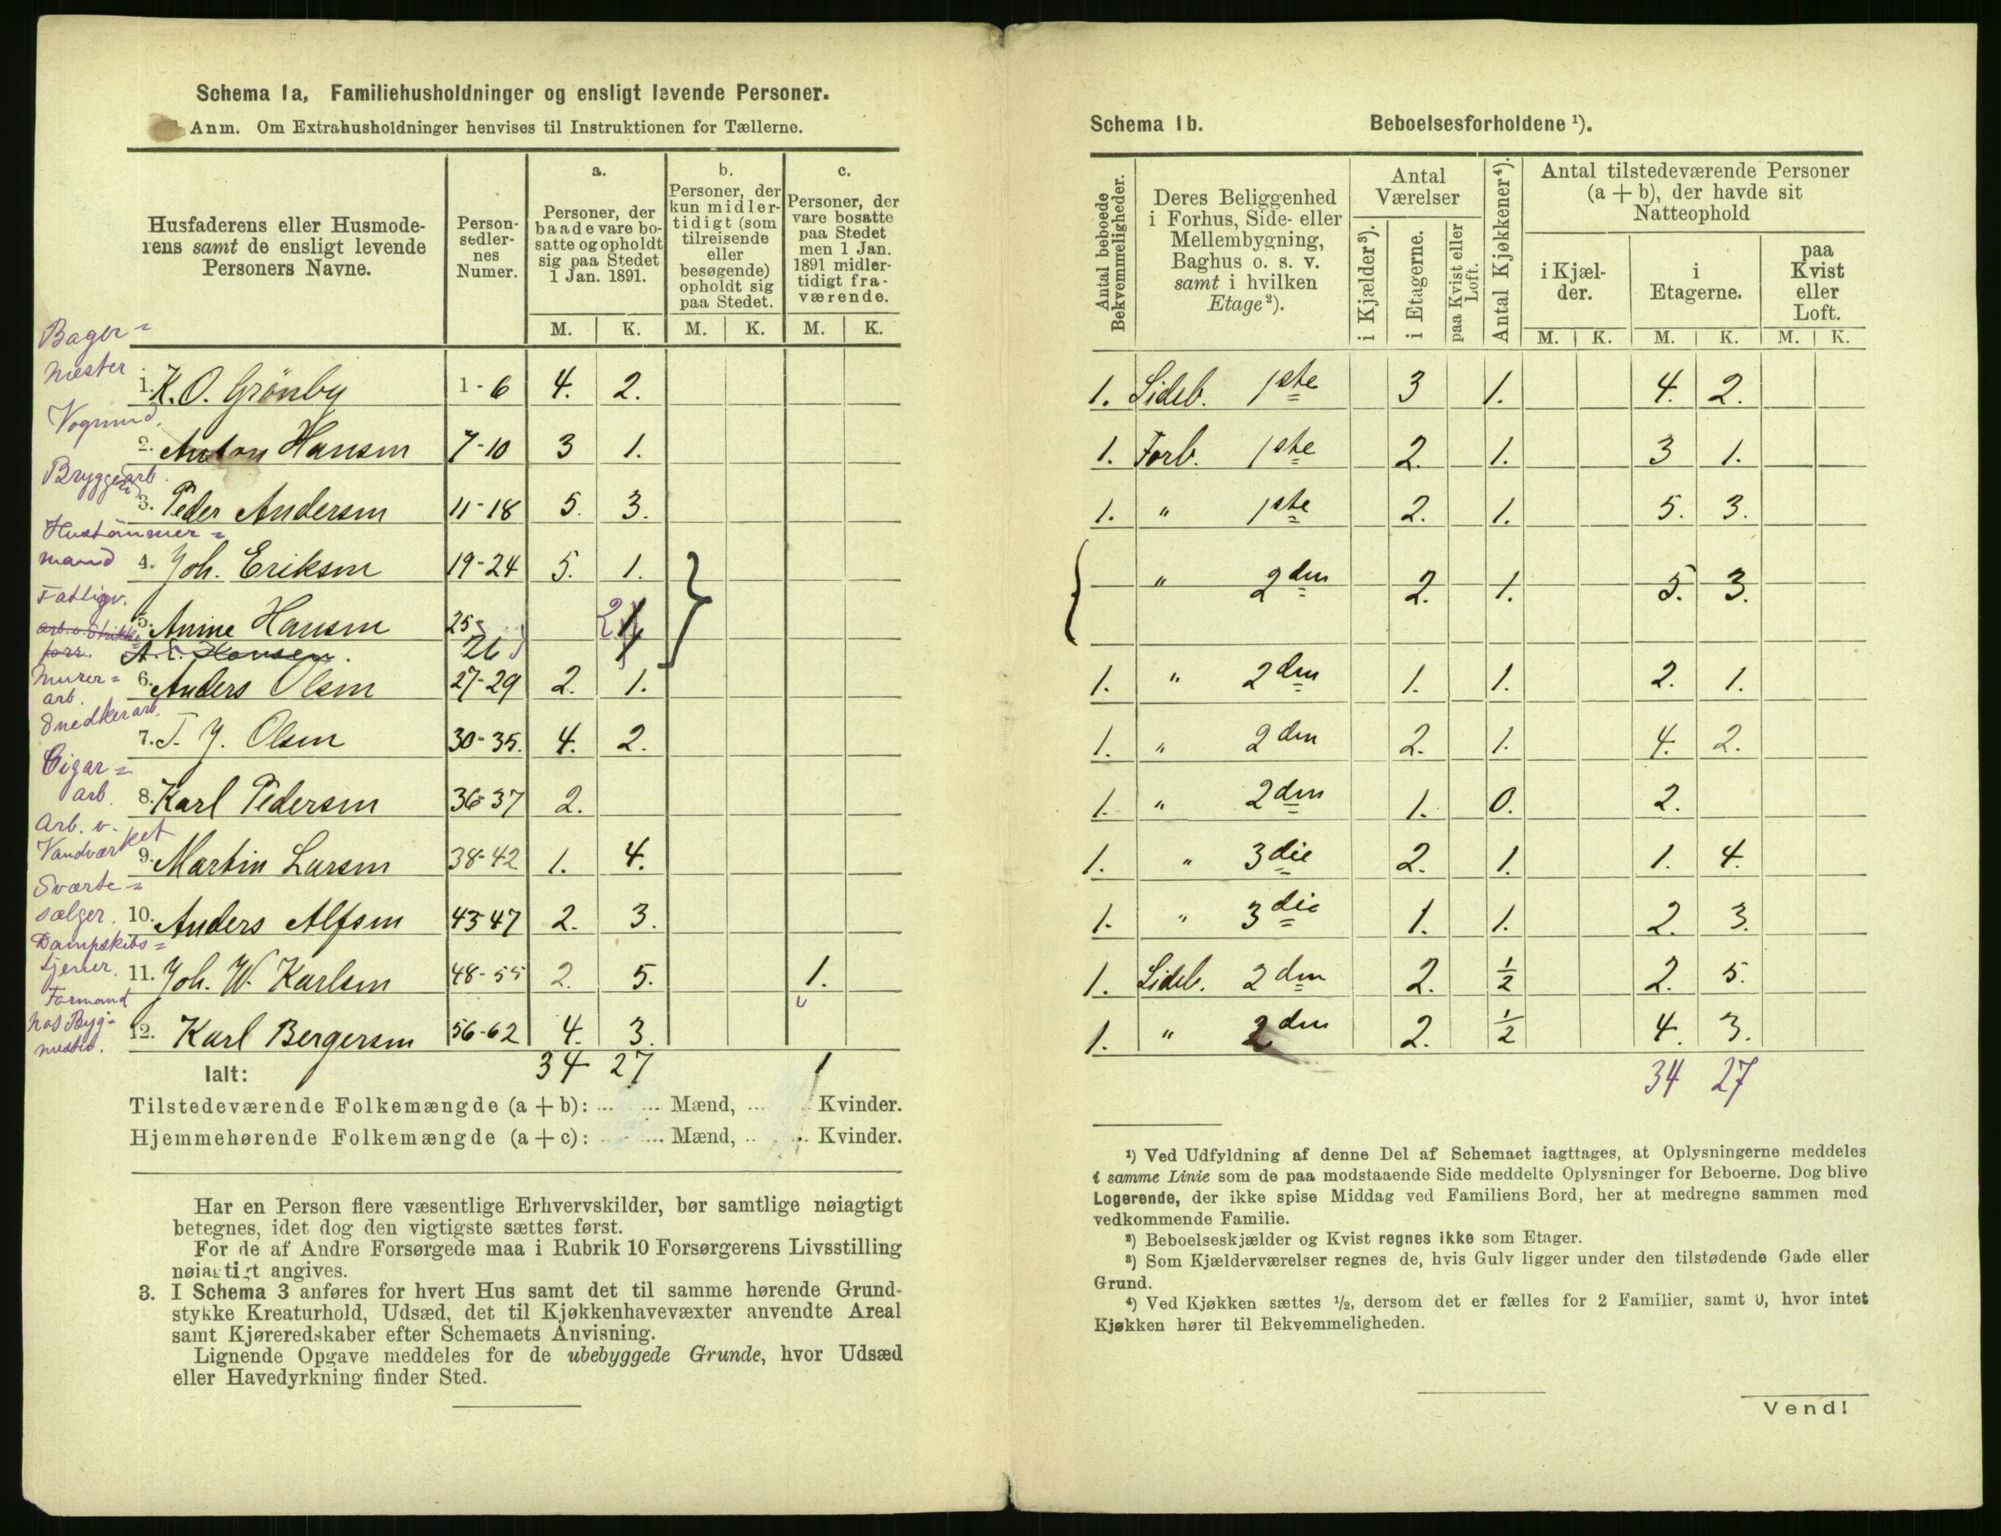 Schema 1a, Familiehusholdninger og ensligt levende Personer.
Anm. Om Extrahusholdninger henvises til Instruktionen for Tællerne.
Husfaderens eller Husmode-
rens samt de ensligt levende
Personers Navne.
Person-
sedler-
nes
Numer.
a.
Personer, der
baade vare bo-
satte og opholdt
sig paa Stedet
1 Jan. 1891.
b.
Personer, der
kun midler-
tidigt (som
tilreisende
eller
besøgende)
opholdt sig
paa Stedet.
c.
Personer, der
vare bosatte
paa Stedet
men 1 Jan.
1891 midler-
tidigt fra-
værende.
M. K. M. K. M. K.
Bager=
mester
1. K. O. Grönby 1-6 4. 2.
Vognmd.
2. Anton Hansen 7-10 3 1.
Bryggeriarb.
3. Peder Andersen 11-18 5. 3.
Hustömmer=
mand 4. Joh. Eriksen 19-24 5. 1. }
Fattigv.
5. Anine Hansen 25 2 1
arb. v. Strikke
forr. A. E. Hansen. 26 1
Murer=
arb. 6. Anders Olsen 27-29 2. 1.
Snedkerarb.
7. T. J. Olsen 30-35. 4. 2.
Cigar=
arb. 8. Karl Pedersen 36-37 2.
Arb. v.
Vandværket 9. Martin Larsen 38-42 1. 4.
Sværte=
sælger. 10. Anders Alfsen 43-47 2. 3.
Dampskibs=
tjener. 11. Joh. W. Karlsen 48-55 2. 5. 1.
Formand
hos Byg-
mester. 12. Karl Bergersen 56-62 4. 3.
Ialt: 34 27 1
Tilstedeværende Folkemængde (a + b): ... ... Mænd, ... Kvinder.
Hjemmehørende Folkemængde (a + c): ... ... Mænd, ... Kvinder.
Har en Person flere væsentlige Erhvervskilder, bør samtlige nøiagtigt
betegnes, idet dog den vigtigste sættes først.
For de af Andre Forsørgede maa i Rubrik 10 Forsørgerens Livsstilling
nøiagtigt angives.
3. I Schema 3 anføres for hvert Hus samt det til samme hørende Grund-
stykke Kreaturhold, Udsæd, det til Kjøkkenhavevæxter anvendte Areal
samt Kjøreredskaber efter Schemaets Anvisning.
Lignende Opgave meddeles for de ubebyggede Grunde, hvor Udsæd
eller Havedyrkning finder Sted.
Schema 1b. Beboelsesforholdene ¹).
Antal beboede
Bekvemmeligheder.
Deres Beliggenhed
i Forhus, Side- eller
Mellembygning,
Baghus o. s. v.
samt i hvilken
Etage ²).
Antal
Værelser
i Kjælder ³).
i Etagerne.
paa Kvist eller
Loft.
Antal Kjøkkener ⁴).
Antal tilstedeværende Personer
(a + b), der havde sit
Natteophold
i Kjæl-
der.
i
Etagerne.
paa
Kvist
eller
Loft.
M. K. M. K. M. K.
1. Sideb. 1ste 3 1. 4. 2.
1. Forb. 1ste 2. 1. 3 1.
1. " 1ste 2. 1. 5. 3.
{ " 2den 2. 1. 5. 3.
1. " 2den 1. 1. 2. 1.
1. " 2den 2. 1. 4. 2.
1. " 2den 1. 0. 2.
1. " 3die 2. 1. 1. 4.
1. " 3die 1. 1. 2. 3.
1. Sideb. 2den 2. ½ 2. 5.
1. " 2den 2. ½ 4. 3.
34 27
¹) Ved Udfyldning af denne Del af Schemaet iagttages, at Oplysningerne meddeles
i samme Linie som de paa modstaaende Side meddelte Oplysninger for Beboerne. Dog blive
Logerende, der ikke spise Middag ved Familiens Bord, her at medregne sammen med
vedkommende Familie.
²) Beboelseskjælder og Kvist regnes ikke som Etager.
³) Som Kjælderværelser regnes de, hvis Gulv ligger under den tilstødende Gade eller
Grund.
⁴) Ved Kjøkken sættes ½, dersom det er fælles for 2 Familier, samt 0, hvor intet
Kjøkken hører til Bekvemmeligheden.
Vend!